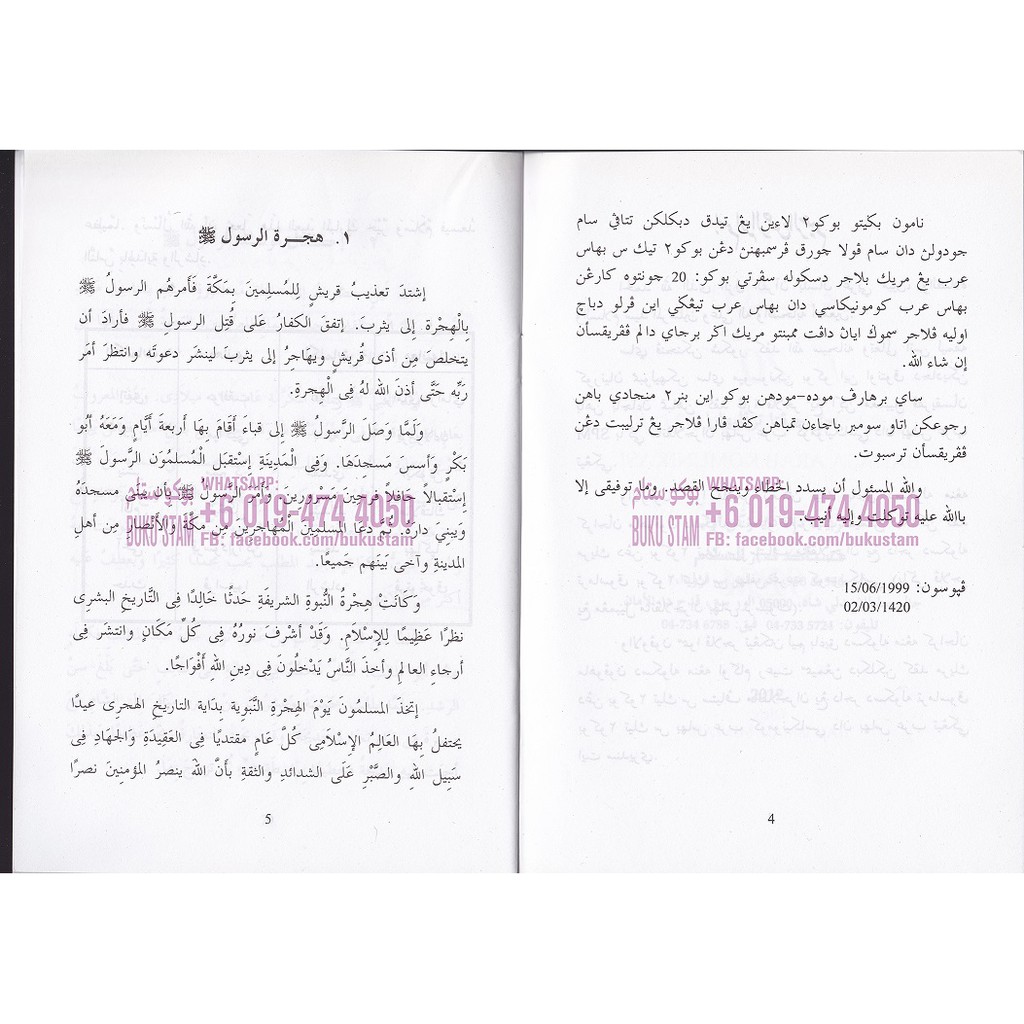 نامون بݢيتو بوكو٢ لاءين يڠ تيدق دبكلكن تتاڤي سام
جودولڽ دان سام ڤولا جورق ڤرسمبهنڽ دڠن بوكو٢ تيك س بهاس
عرب يڠ مريك بلاجر دسكوله سڤرتي بوكو: 20 جونتوه كارڠن
بهاس عرب كومونيكاسي دان بهاس عرب تيڠݢي اين ڤرلو دباچ
اوليه ڤلاجر سموك اياڽ داڤت ممبنتو مريك اݢر برجاي دالم ڤڤريقسأن
إن شاء الله.
ساي برهارڤ موده-مودهن بوكو اين بنر٢ منجادي باهن
رجوعكن اتاو سومبر باجاءن تمباهن كڤد ڤارا ڤلاجر يڠ ترليبت دڠن
ڤڤريقسأن ترسبوت.
والله المسئول أن يسدد الخطاء وينجح القصد. وما توفيقى إلا
باالله عليه توكلت وإليه أنيب.
ڤڽوسون: 15/06/1999
02/03/1420
4
١. هجـرة الرسول ﷺ
إشتدَ تعذيبُ قريشٍ لِلمُسلِمينَ بِمَكَّةَ فَأَمرهُم الرسولُ ﷺ
بِالْهِجْرة إلى يثربَ. إتفقَ الكفارُ عَلى قُتِل الرسولِ ﷺ فأرادَ أن
يتخلصَ مِن أذى قُريش ويهَاجِرُ إلى يثربَ لينشر دعوتَه وانتظرَ أمَر
رَبِّه حَتَّى أذنَ الله لهُ فِى الْهجرةِ.
وَلَمَّا وَصَلَ الرَّسولُ ﷺ إلى قباءَ أَقَامَ بِهَا أربعةَ أَيَّامٍ وَمَعَهُ أَبُو
بَكْرٍ وَأسسَ مَسجدَهَا. وَفِى الْمَدِينَةِ إسْتقبَل الْمُسلمُون الرَّسولَ ﷺ
إسْتقبالاً حَافِلاً فَرحِينَ مَسْرورينَ. وَأَمَر الرَّسُولُ ﷺ بأن يبْنَى مسجدَهُ
وَيبنِيَ دارَهُ. ثُمَّ دعَا المسلمِينَ الْمُهَاجرين مِن مكَّةَ والأَنْصَار مِن أهلِ
المدينةِ وآخى بَينَهم جَميعًا.
وَكَانَتْ هِجْرةُ النُّبوةِ الشريفَةِ حَدثًا خَالِدًا فِى التَّاريخِ البشرى
نظرًا عَظِيمًا لِلإِسْلاَمِ. وَقَدْ أشْرقَ نورُهُ فِى كُلِّ مَكَانٍ وانتشَر فِى
أرجاءِ العالمِ وأخذَ النَّاسُ يَدْخلُونَ فِى دِينِ اللهِ أَفْوَاجًا.
إتخذَ المسلمُونَ يَوْمَ الهِجْرةِ النَّبَوِيةِ بِدَاية التاريخِ الهجرى عيدًا
يحتفلُ بِهَا العَالِمُ الإسْلاَمِى كُلَّ عَامٍ مقتديًا فِى العَقِيدَةِ وَالجهَادِ فِى
سَبِيلِ اللهِ والصَّبْرِ عَلَى الشدائدِ والثقةِ بأَنَّ اللهَ ينصرُ المؤمنِينَ نصرًا
5
بوكو ستام
BUKU STAM
WHATSAPP:
+6 019-474 4050
FB: facebook.com/bukustam
بوكو ستام
BUKU STAM
WHATSAPP:
+6 019-474 4050
FB: facebook.com/bukustam